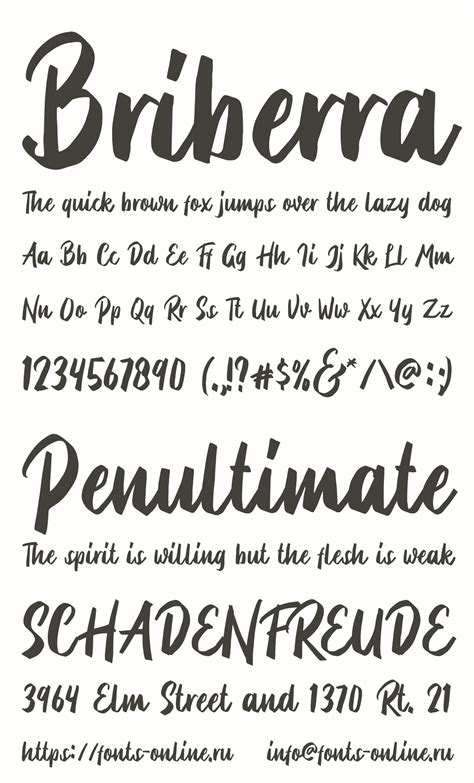 Briberra
The quick brown fox jumps over the lazy dog
Aa Bb Cc Dd Ee Ff Gg Hh Ii Jj Kk Ll Mm
Nn Oo Pp Qq Rr Ss Tt Uu Vv Ww Xx Yy Zz
1234567890 (.,!?#$%&*/\@:;)
Penultimate
The spirit is willing but the flesh is weak
SCHADENFREUDE
3964 Elm Street and 1370 Rt. 21
https://fonts-online.ru info@fonts-online.ru